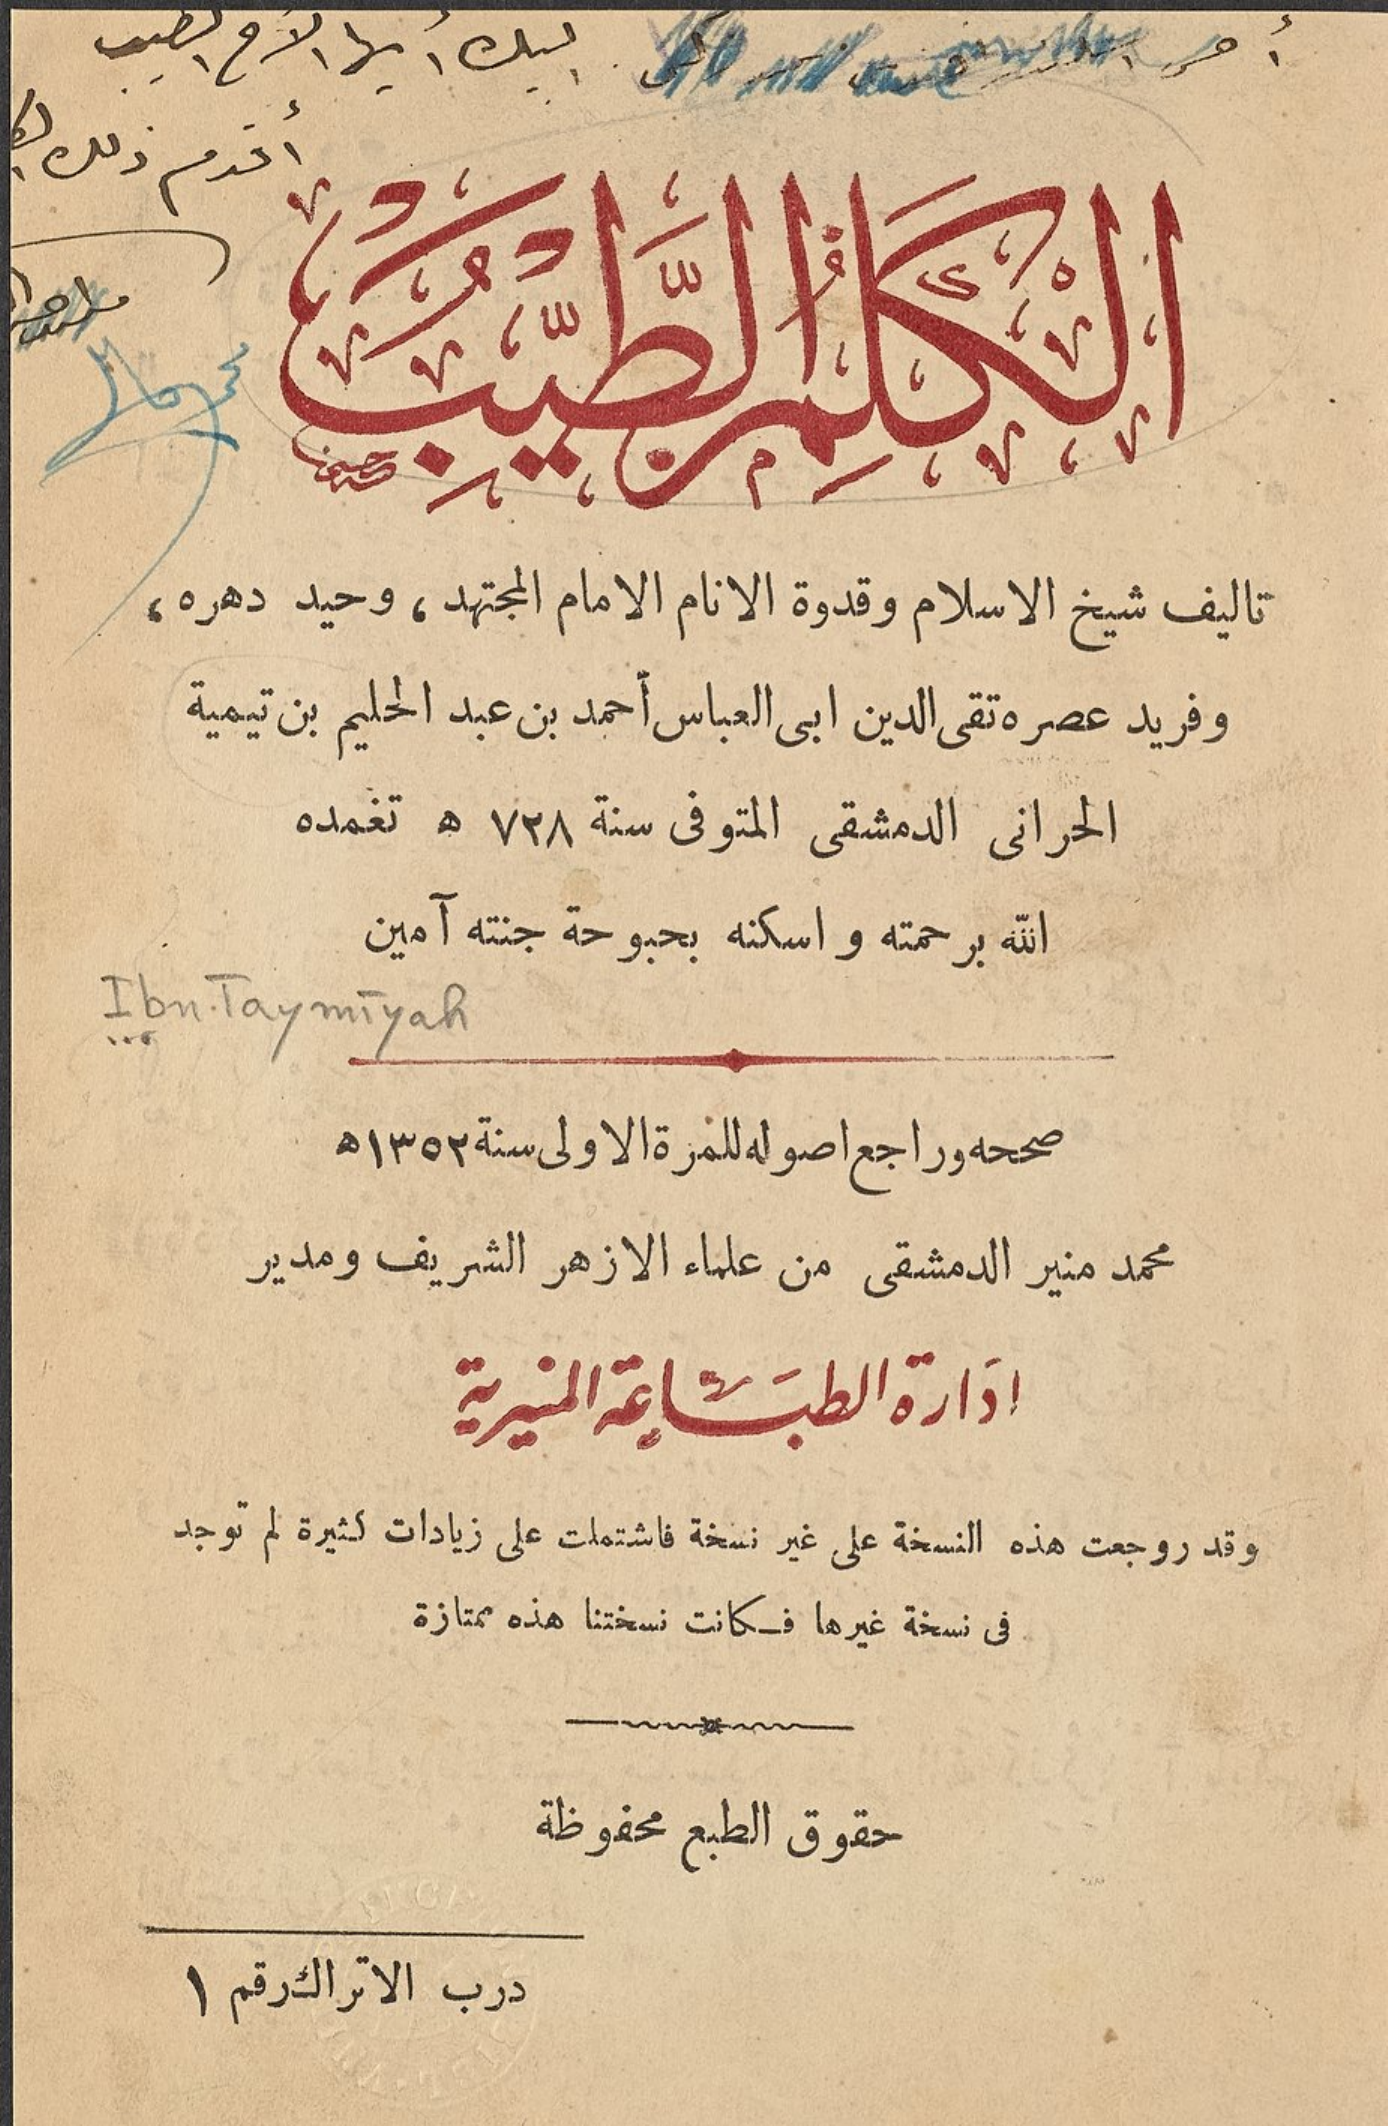 إليك أيها الأخ الطيب
أقدم ذلك
الكلم الطيب
تاليف شيخ الاسلام وقدوة الانام الامام المجتهد، وحيد دهره،
وفريد عصره تقى الدين ابى العباس أحمد بن عبد الحليم بن تيمية
الحرانى الدمشقى المتوفى سنة ٧٢٨ ه تغمده
الله برحمته واسكنه بحبوحة جنته آمين
Ibn Taymīyah
صححه وراجع اصوله للمرة الاولى سنة ١٣٥٢ه
محمد منير الدمشقى من علماء الازهر الشريف ومدير
ادارة الطباعة المنيرية
وقد روجعت هذه النسخة على غير نسخة فاشتملت على زيادات كثيرة لم توجد
فى نسخة غيرها فكانت نسختنا هذه ممتازة
حقوق الطبع محفوظة
درب الاتراك رقم ١